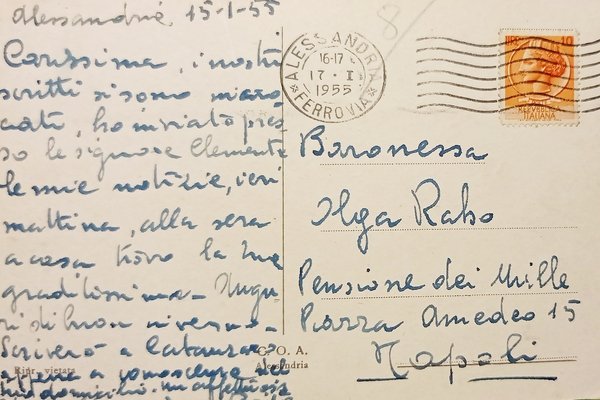 Alessandria, 15-1-55
Carissima, i nostri
scritti si sono incro
ciati, ho inviato pres
so le signore Clemente
le mie notizie, ieri
mattina, alla sera
a casa trovo la tua
graditissima - Augu
ri di buon riverno -
Scriverò a Catanzaro
appena a conoscenza del
tuo domicilio. un affettuos
ALESSANDRIA
16-17
17 - I
1955
FERROVIA
10
ITALIANA
Baronessa
Olga Raho
Pensione dei Mille
Piazza Amedeo 15
Napoli
C. O. A.
Alessandria
Ripr. vietata
8